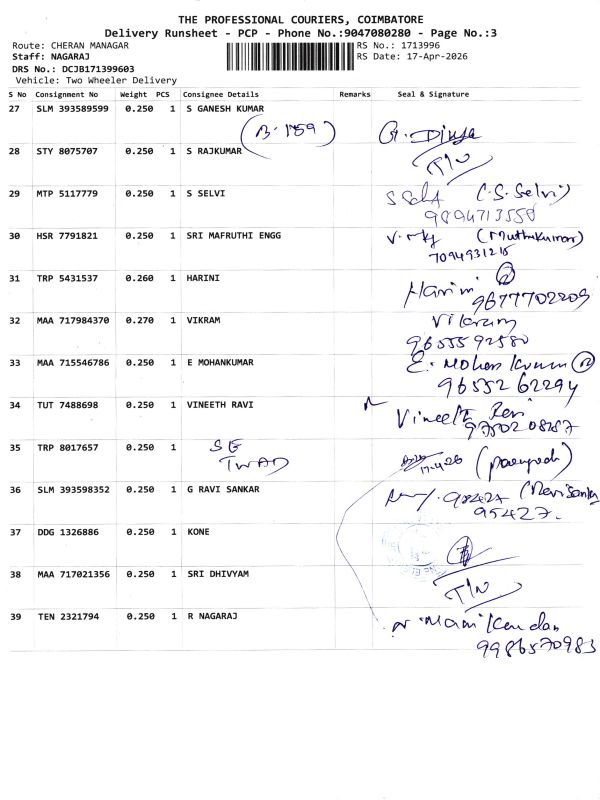 THE PROFESSIONAL COURIERS, COIMBATORE
Delivery Runsheet - PCP - Phone No.:9047080280 - Page No.:3
Route: CHERAN MANAGAR RS No.: 1713996
Staff: NAGARAJ RS Date: 17-Apr-2026
DRS No.: DCJB171399603
Vehicle: Two Wheeler Delivery
S No Consignment No Weight PCS Consignee Details Remarks Seal & Signature
27 SLM 393589599 0.250 1 S GANESH KUMAR
(B-1759) G. Divya
28 STY 8075707 0.250 1 S RAJKUMAR T/N
29 MTP 5117779 0.250 1 S SELVI (S. Selvi)
9894713550
30 HSR 7791821 0.250 1 SRI MAFRUTHI ENGG (Muthukumar)
7094931215
31 TRP 5431537 0.260 1 HARINI Harini
9677702209
32 MAA 717984370 0.270 1 VIKRAM Vikram
9655592580
33 MAA 715546786 0.250 1 E MOHANKUMAR E. Mohan Kumar
9655262294
34 TUT 7488698 0.250 1 VINEETH RAVI Vineeth Ravi
9750208187
35 TRP 8017657 0.250 1 SE
TWAD 17-4-26
36 SLM 393598352 0.250 1 G RAVI SANKAR 98424 (Ravi Sankar
95427.
37 DDG 1326886 0.250 1 KONE
38 MAA 717021356 0.250 1 SRI DHIVYAM T/N
39 TEN 2321794 0.250 1 R NAGARAJ Manikandan
9986570983